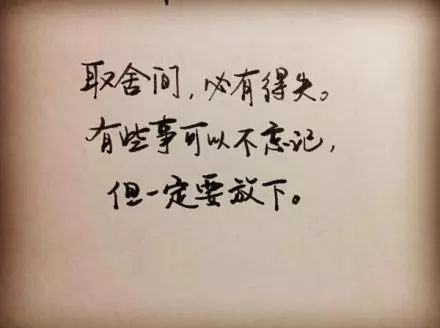 取舍间,必有得失。
有些事可以不忘记,
但一定要放下。